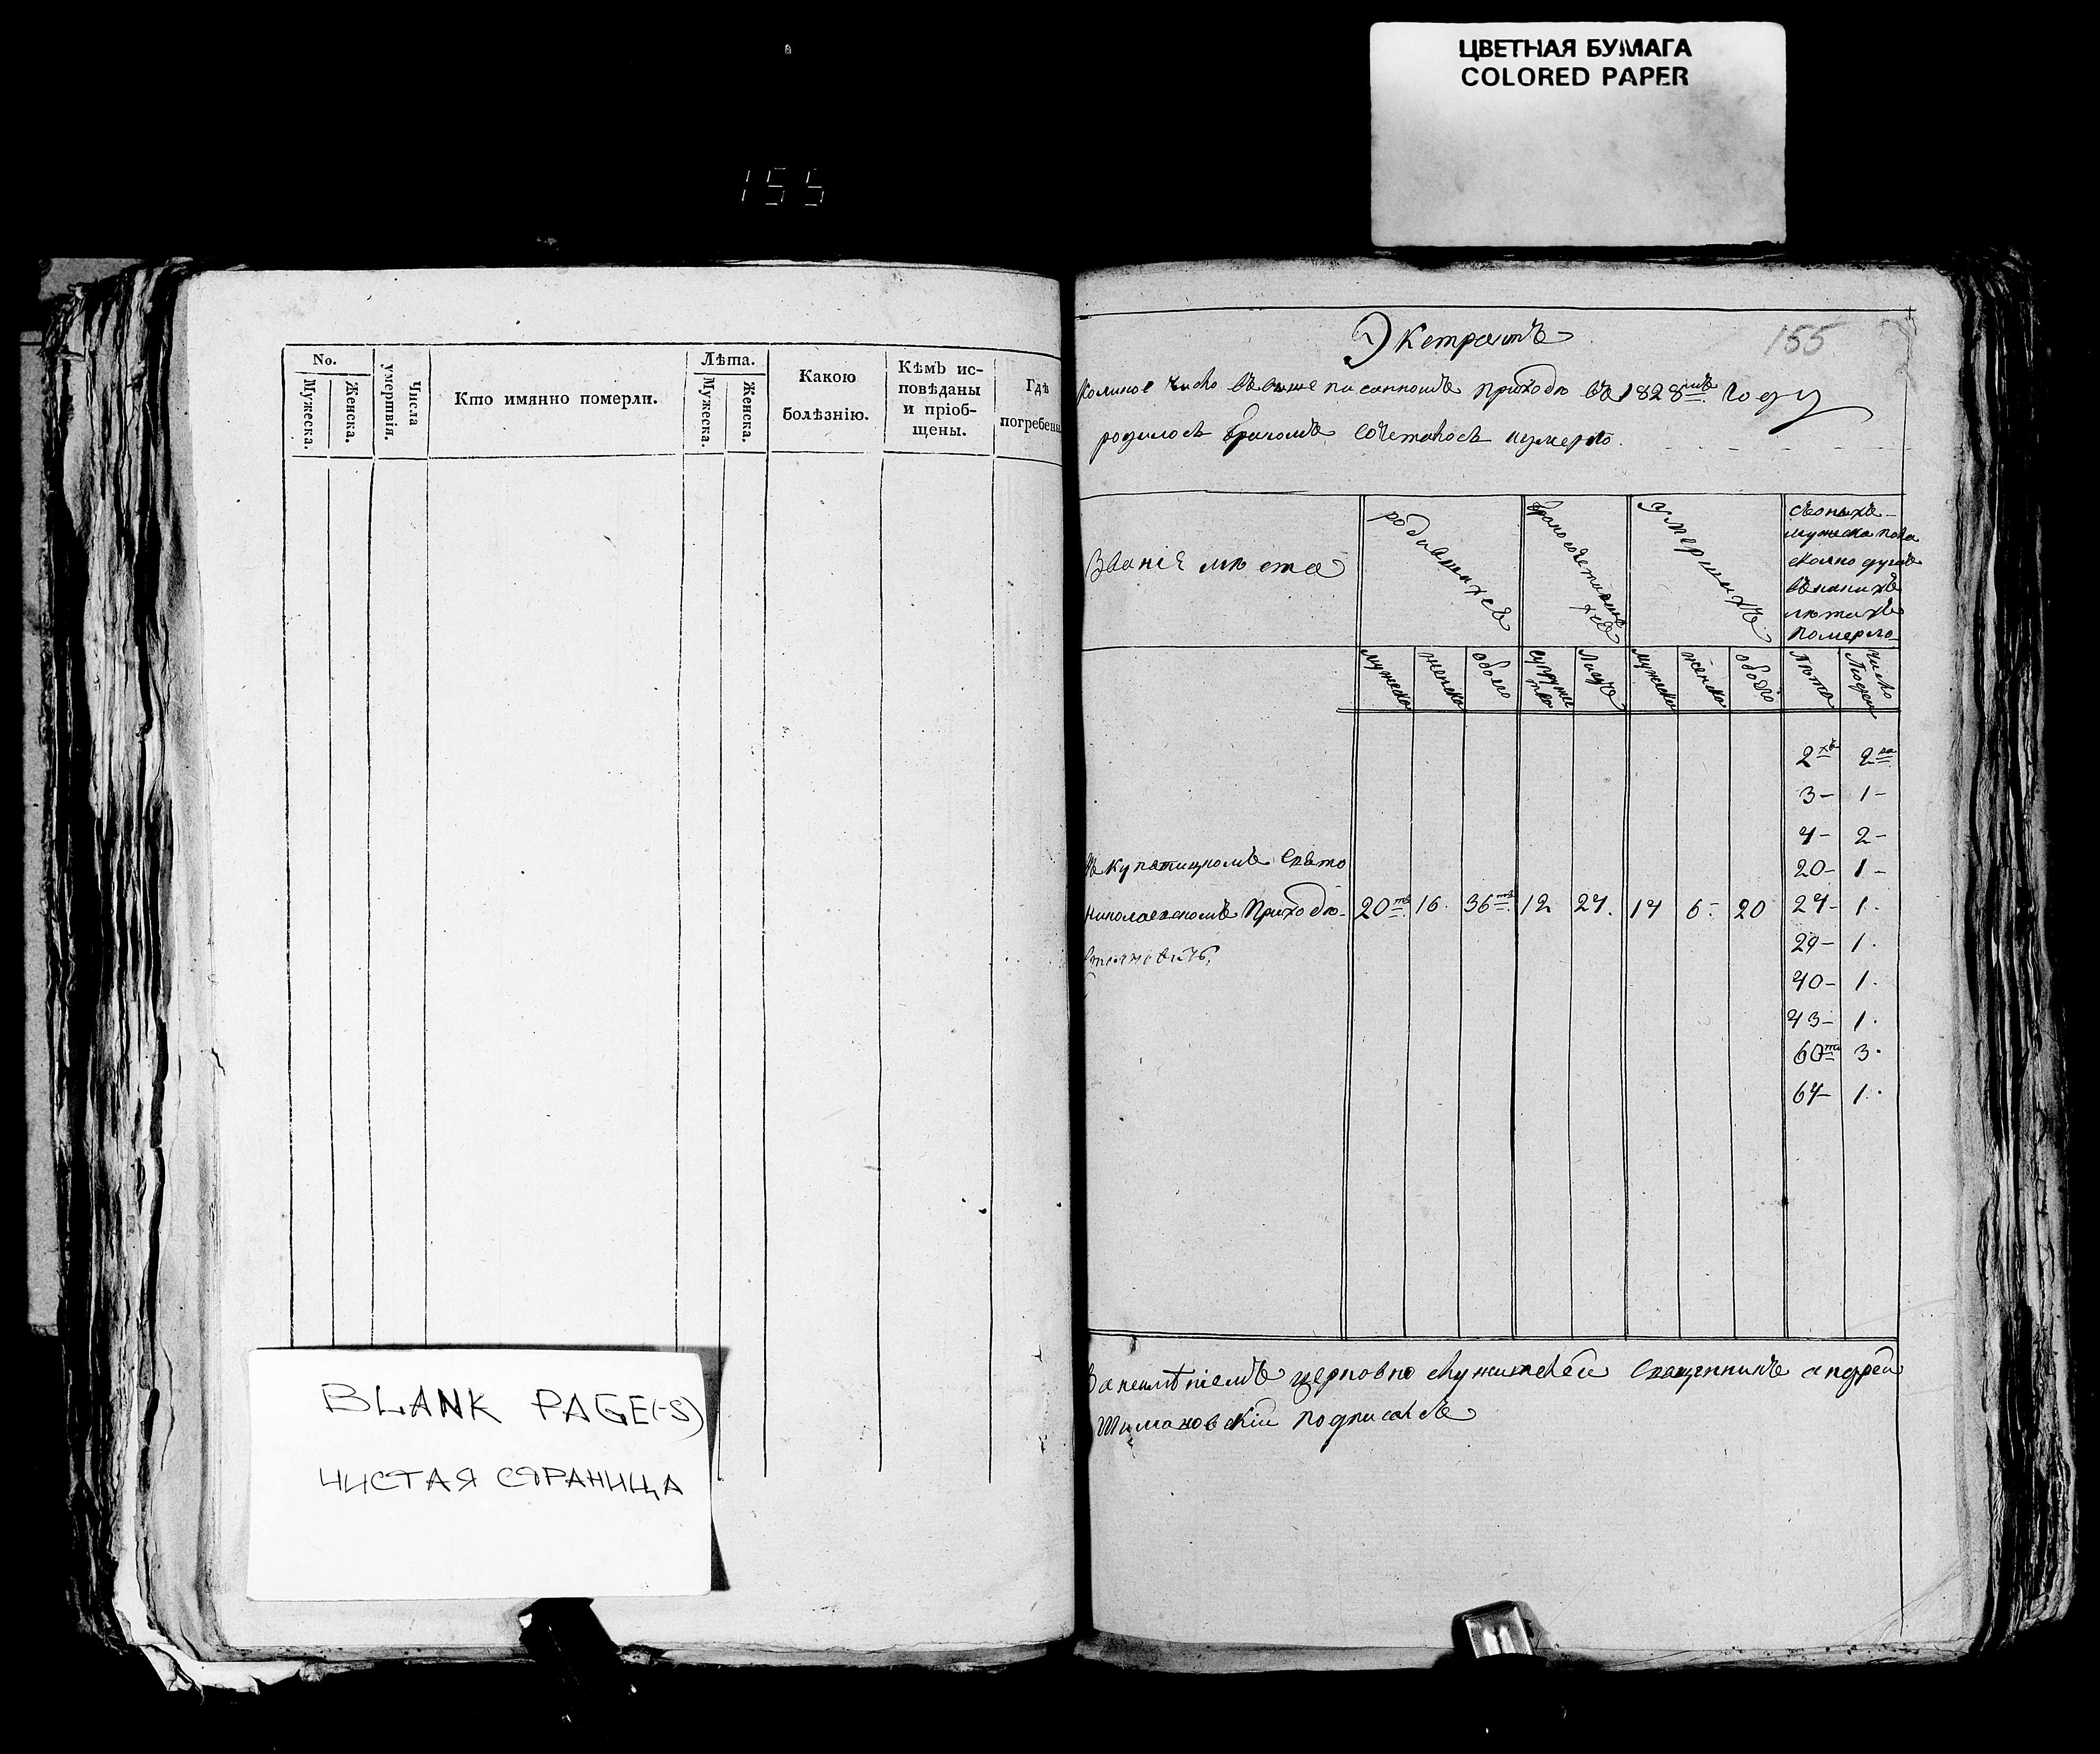 ЦВЕТНАЯ БУМАГА
COLORED PAPER
155
No.
Мужеска.
Женска.
Числа умертвія.
Кто имянно померли.
Лѣта.
Мужеска.
Женска.
Какою
болѣзнію.
Кѣмъ ис-
повѣданы
и пріоб-
щены.
Гдѣ
погребены
BLANK PAGE(-S)
ЧИСТАЯ СТРАНИЦА
Экстрактъ
155
Коликое число въ выше писанномъ приходѣ въ 1828мъ Году
родилось бракомъ сочеталось и умерло.
Званіе мѣста
родившихся
бракосочетавшихся
Умершихъ
съ оныхъ
мужеска пола
сколко душъ
въ какихъ
лѣтахъ
померло
мужеска
женска
обоего
супружества
Лицъ
мужеска
женска
обоего
Лѣта
число Людей
2хъ 2ва
3- 1-
4- 2-
20- 1-
24- 1.
29- 1.
40- 1.
43- 1.
60ти 3.
64- 1.
Свято
Николаевскомъ Приходѣ 20ть 16. 36ть 12 24. 14 6- 20
За неимѣніемъ церковно служителей Священникъ андрей
Шимановскій подписалсъ